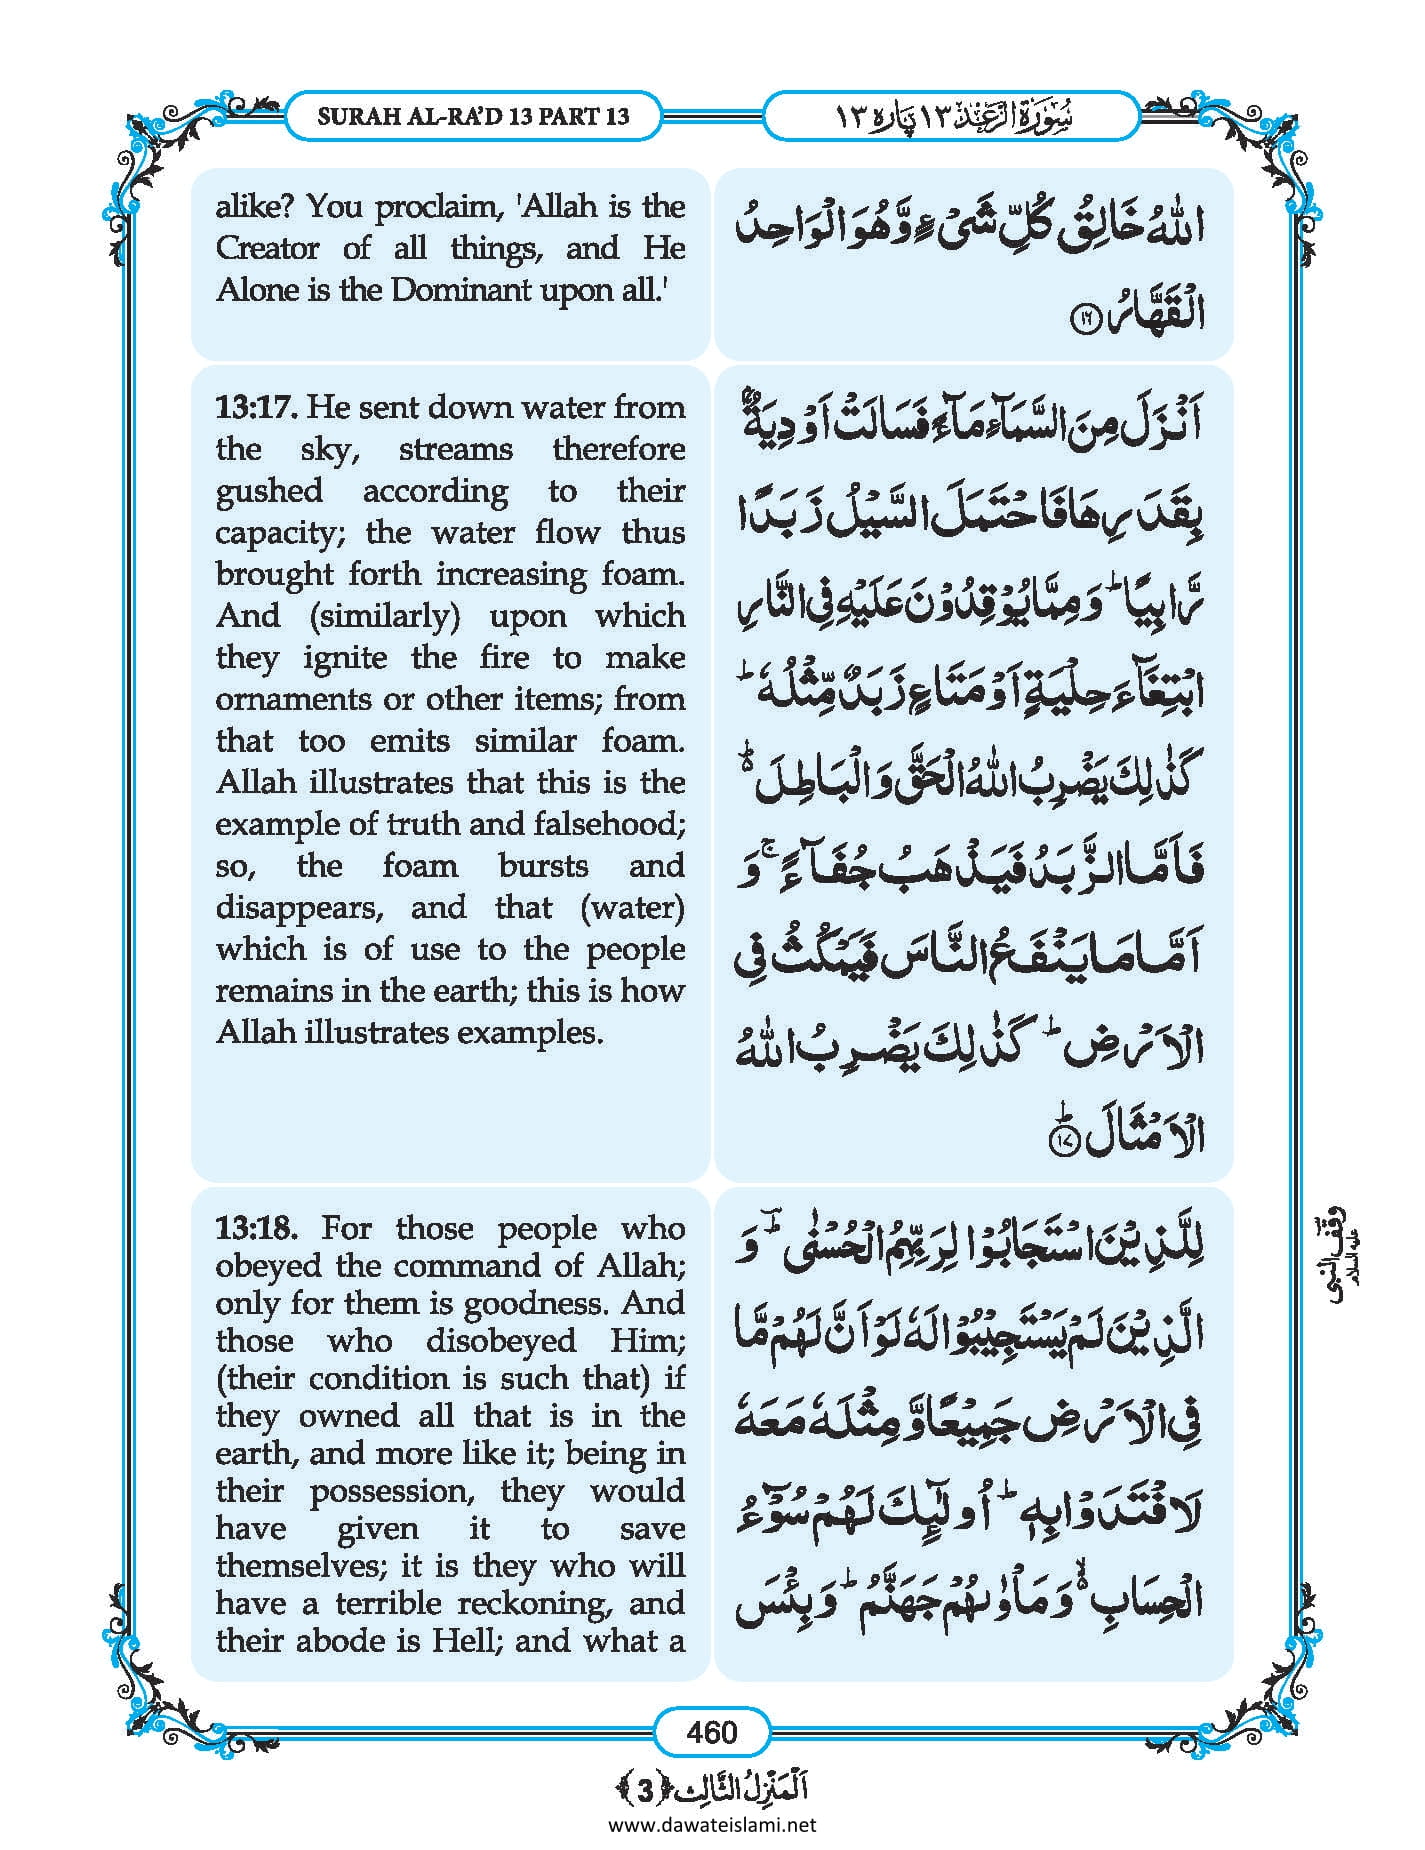 SURAH AL-RA’D 13 PART 13
سُوْرَۃُ الرَّعْد ۱۳ پارہ ۱۳
alike? You proclaim, 'Allah is the
Creator of all things, and He
Alone is the Dominant upon all.'
اللّٰهُ خَالِقُ كُلِّ شَیْءٍ وَّ هُوَ الْوَاحِدُ
الْقَهَّارُ ۝۱۶
13:17. He sent down water from
the sky, streams therefore
gushed according to their
capacity; the water flow thus
brought forth increasing foam.
And (similarly) upon which
they ignite the fire to make
ornaments or other items; from
that too emits similar foam.
Allah illustrates that this is the
example of truth and falsehood;
so, the foam bursts and
disappears, and that (water)
which is of use to the people
remains in the earth; this is how
Allah illustrates examples.
اَنْزَلَ مِنَ السَّمَآءِ مَآءً فَسَالَتْ اَوْدِیَةٌۢ
بِقَدَرِهَا فَاحْتَمَلَ السَّیْلُ زَبَدًا
رَّابِیًاؕ وَ مِمَّا یُوْقِدُوْنَ عَلَیْهِ فِی النَّارِ
ابْتِغَآءَ حِلْیَةٍ اَوْ مَتَاعٍ زَبَدٌ مِّثْلُهٗؕ
كَذٰلِكَ یَضْرِبُ اللّٰهُ الْحَقَّ وَ الْبَاطِلَ۬ؕ
فَاَمَّا الزَّبَدُ فَیَذْهَبُ جُفَآءًۚ وَ
اَمَّا مَا یَنْفَعُ النَّاسَ فَیَمْكُثُ فِی
الْاَرْضِؕ كَذٰلِكَ یَضْرِبُ اللّٰهُ
الْاَمْثَالَؕ ۝۱۷
13:18. For those people who
obeyed the command of Allah;
only for them is goodness. And
those who disobeyed Him;
(their condition is such that) if
they owned all that is in the
earth, and more like it; being in
their possession, they would
have given it to save
themselves; it is they who will
have a terrible reckoning, and
their abode is Hell; and what a
لِلَّذِیْنَ اسْتَجَابُوْا لِرَبِّهِمُ الْحُسْنٰىﳳؕ وَ
الَّذِیْنَ لَمْ یَسْتَجِیْبُوْا لَهٗ لَوْ اَنَّ لَهُمْ مَّا
فِی الْاَرْضِ جَمِیْعًا وَّ مِثْلَهٗ مَعَهٗ
لَافْتَدَوْا بِهٖؕ اُولٰٓىٕكَ لَهُمْ سُوْٓءُ
الْحِسَابِ۬ۙ وَ مَاْوٰىهُمْ جَهَنَّمُؕ وَ بِئْسَ
وقف النبی
علیہ السلام
460
اَلْمَنْزِلُ الثَّالِث ﴿3﴾
www.dawateislami.net